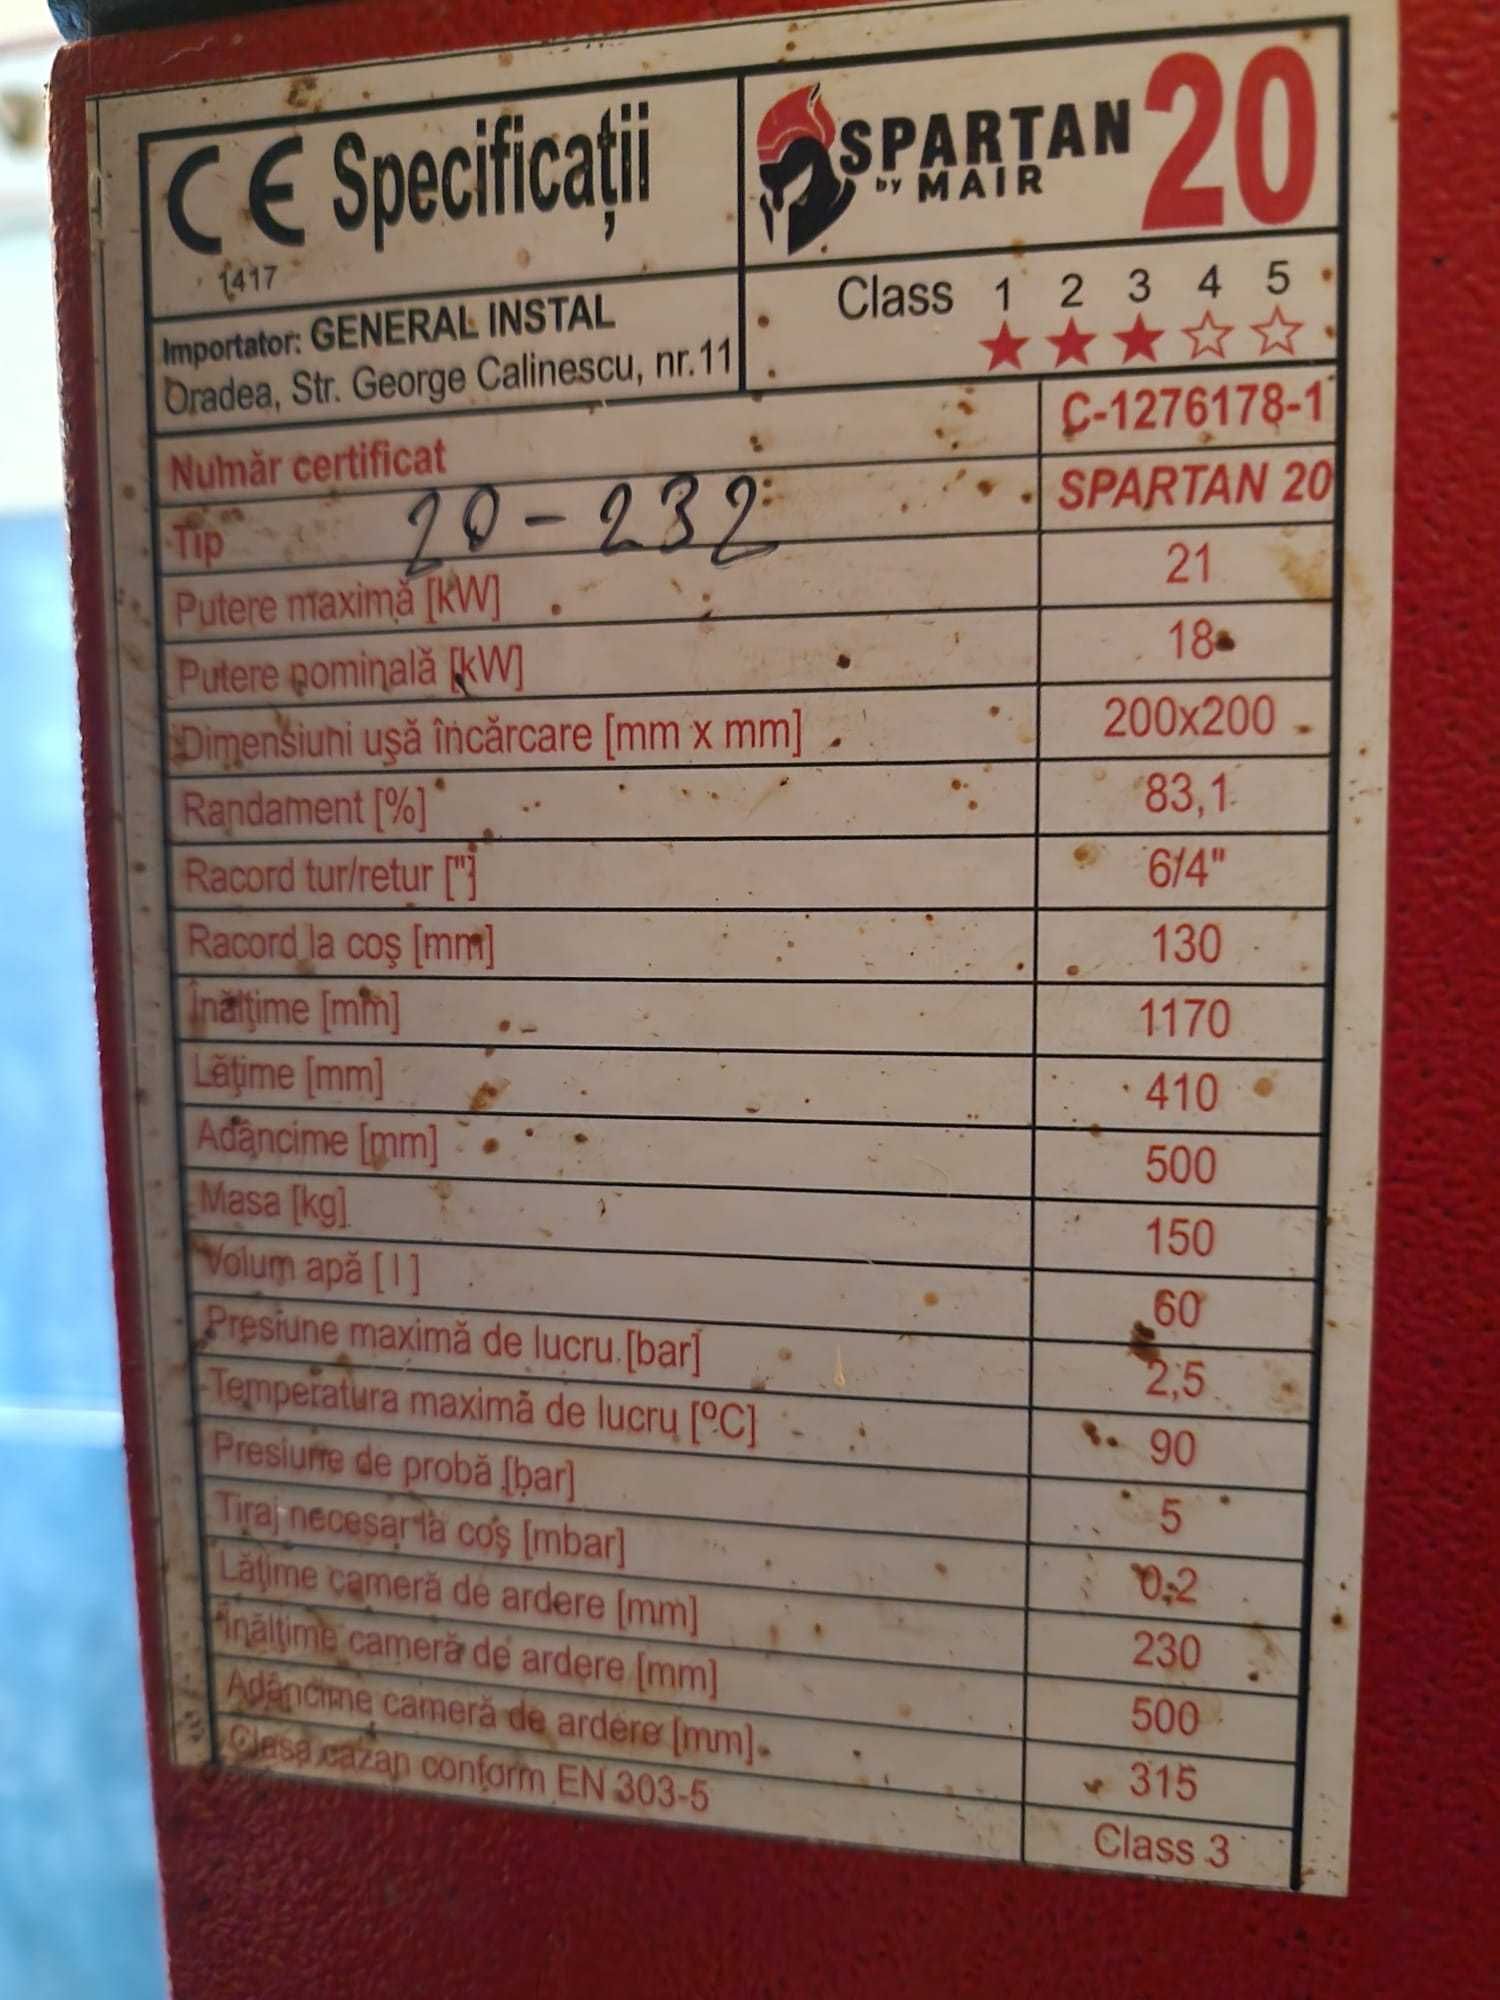 CE Specificații
1417
SPARTAN 20
by MAIR
Importator: GENERAL INSTAL
Oradea, Str. George Calinescu, nr.11
Class 1 2 3 4 5
Număr certificat C-1276178-1
Tip 20-232 SPARTAN 20
Putere maximă [kW] 21
Putere nominală [kW] 18
Dimensiuni uşă încărcare [mm x mm] 200x200
Randament [%] 83,1
Racord tur/retur ["] 6/4"
Racord la coş [mm] 130
Înălţime [mm] 1170
Lăţime [mm] 410
Adâncime [mm] 500
Masa [kg] 150
Volum apă [ l ] 60
Presiune maximă de lucru [bar] 2,5
Temperatura maximă de lucru [ºC] 90
Presiune de probă [bar] 5
Tiraj necesar la coş [mbar] 0,2
Lăţime cameră de ardere [mm] 230
Înălţime cameră de ardere [mm] 500
Adâncime cameră de ardere [mm] 315
Clasa cazan conform EN 303-5 Class 3